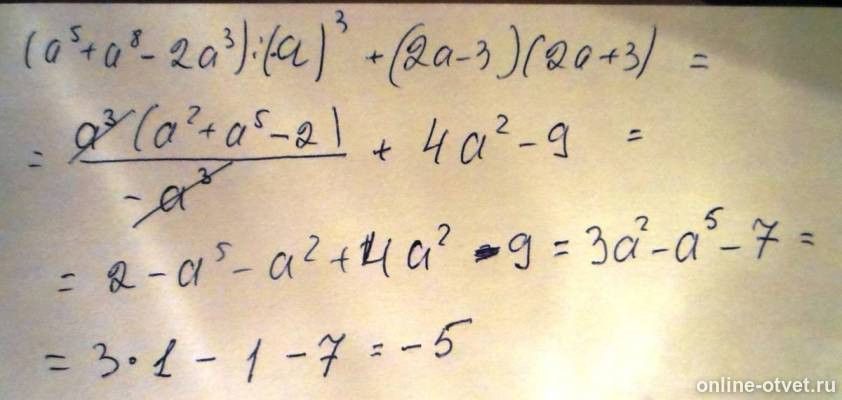 (a⁵+a⁸-2a³):(-a)³+(2a-3)(2a+3)=
= a³(a²+a⁵-2)/-a³ + 4a²-9 =
= 2-a⁵-a²+4a²-9=3a²-a⁵-7=
= 3·1-1-7=-5
online-otvet.ru